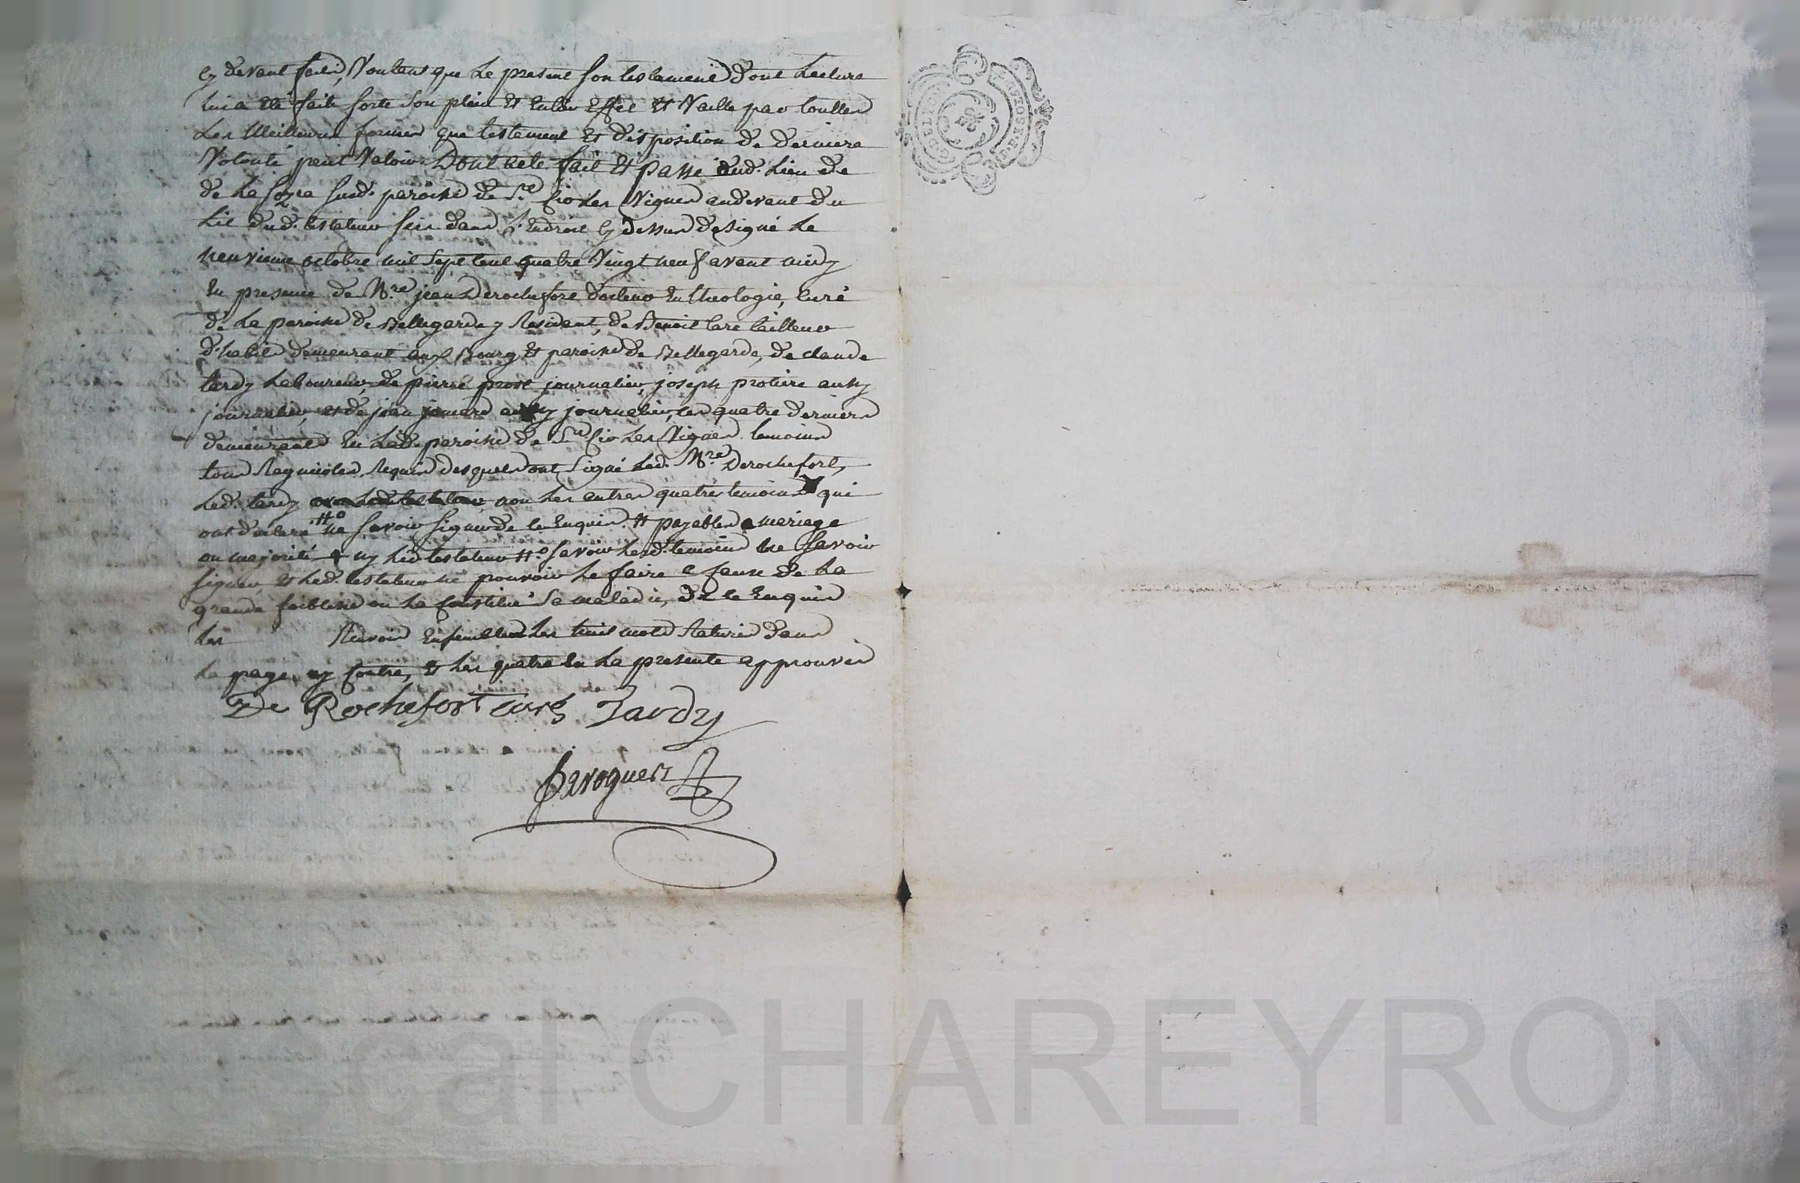 cy devant faits, Voulant que Le present son testament dont Lecture
Lui a été faite sorte son plein Et Entier Effet Et Vaille par touttes
Les Meilleures formes que testament Et disposition de derniere
Volonté peut Valoir Dont acte fait Et Passé aud. Lieu de
de La susd. paroisse de St. Les Vignes audevant du
Lit dud. testateur dans L'Endroit cy dessus designé Le
neuvieme octobre mil sept cent quatre Vingt neuf avant midy
En presence de Mre. jean Derochefort docteur En theologie, curé
de La paroisse de Bellegarde y Residant, de Benoit tailleur
d'habit demeurant aux Bourg Et paroisse de Bellegarde, de claude
tardy Laboureur de pierre journalier, joseph protiere aussy
journalier, et de jean aussy journalier, Les quatre derniers
demeurants En Lad. paroisse de St. Les Vignes temoins
tous Regnicoles, Requis desquels ont Signé Led. Mre. Derochefort,
Led. tardy non Les autres quatre temoins qui
ont declaré ne savoir signer de ce Enquis. # payables a mariage
ou majorité # ny Led. testateur #o savoir Lesd. temoins ne Savoir
signer, Et Led. testateur ne pouvoir Le faire a cause de La
grande foiblesse ou La Constitué Sa maladie, de ce Enquis
Les Renvois Les huit mots Raturés dans
La page cy Contre, Et Les quatre En La presente approuvés
De Rochefort curé Tardy
CHAREYRON